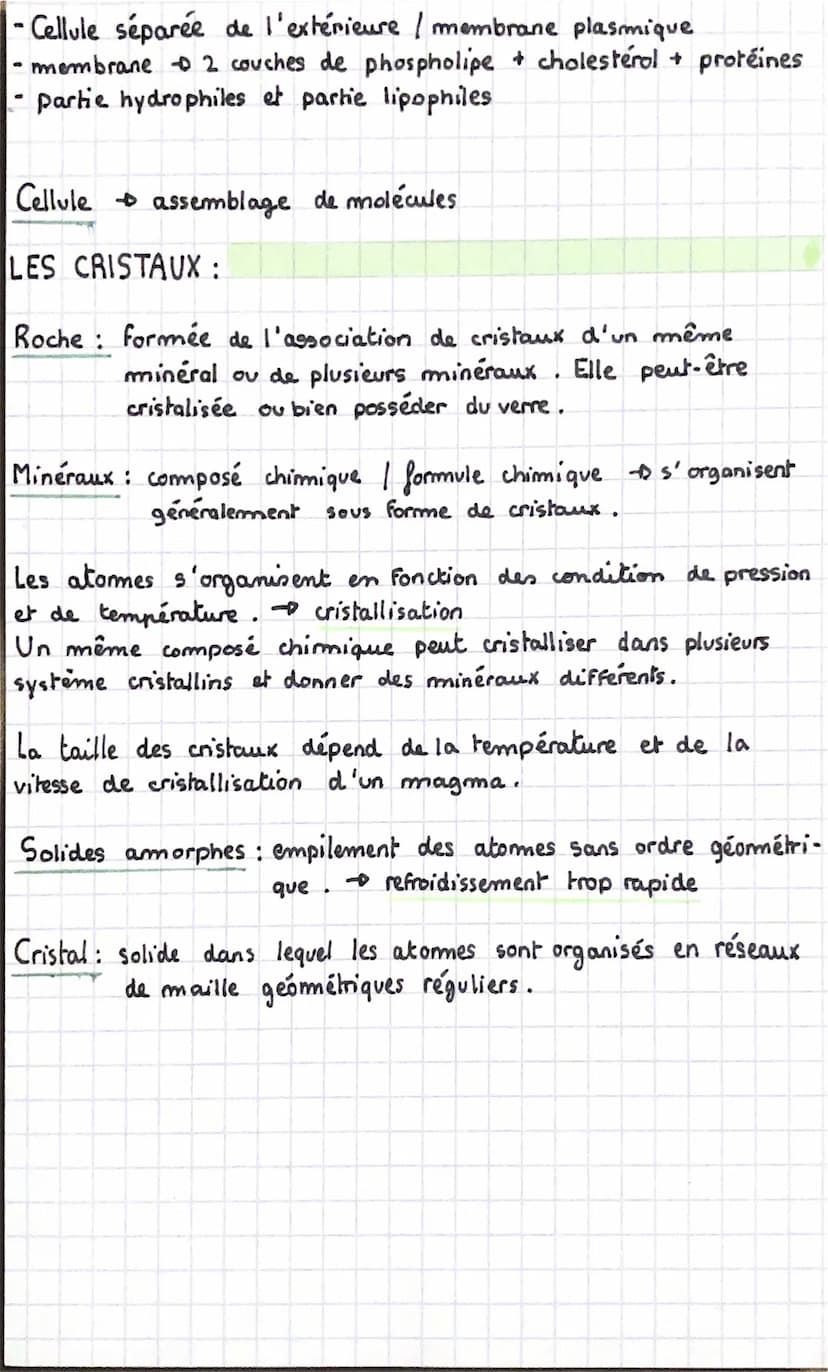 - Cellule séparée de l'extérieure / membrane plasmique
- membrane → 2 couches de phospholipe + cholestérol + protéines
- partie hydrophiles et partie lipophiles
Cellule → assemblage de molécules
LES CRISTAUX :
Roche : formée de l'association de cristaux d'un même
minéral ou de plusieurs minéraux . Elle peut-être
cristalisée ou bien posséder du verre .
Minéraux : composé chimique / formule chimique → s'organisent
généralement sous forme de cristaux .
Les atomes s'organisent en fonction des condition de pression
et de température . → cristallisation
Un même composé chimique peut cristalliser dans plusieurs
système cristallins et donner des minéraux différents .
La taille des cristaux dépend de la température et de la
vitesse de cristallisation d'un magma .
Solides amorphes : empilement des atomes sans ordre géométri-
que . → refroidissement trop rapide
Cristal : solide dans lequel les atomes sont organisés en réseaux
de maille géométriques réguliers .